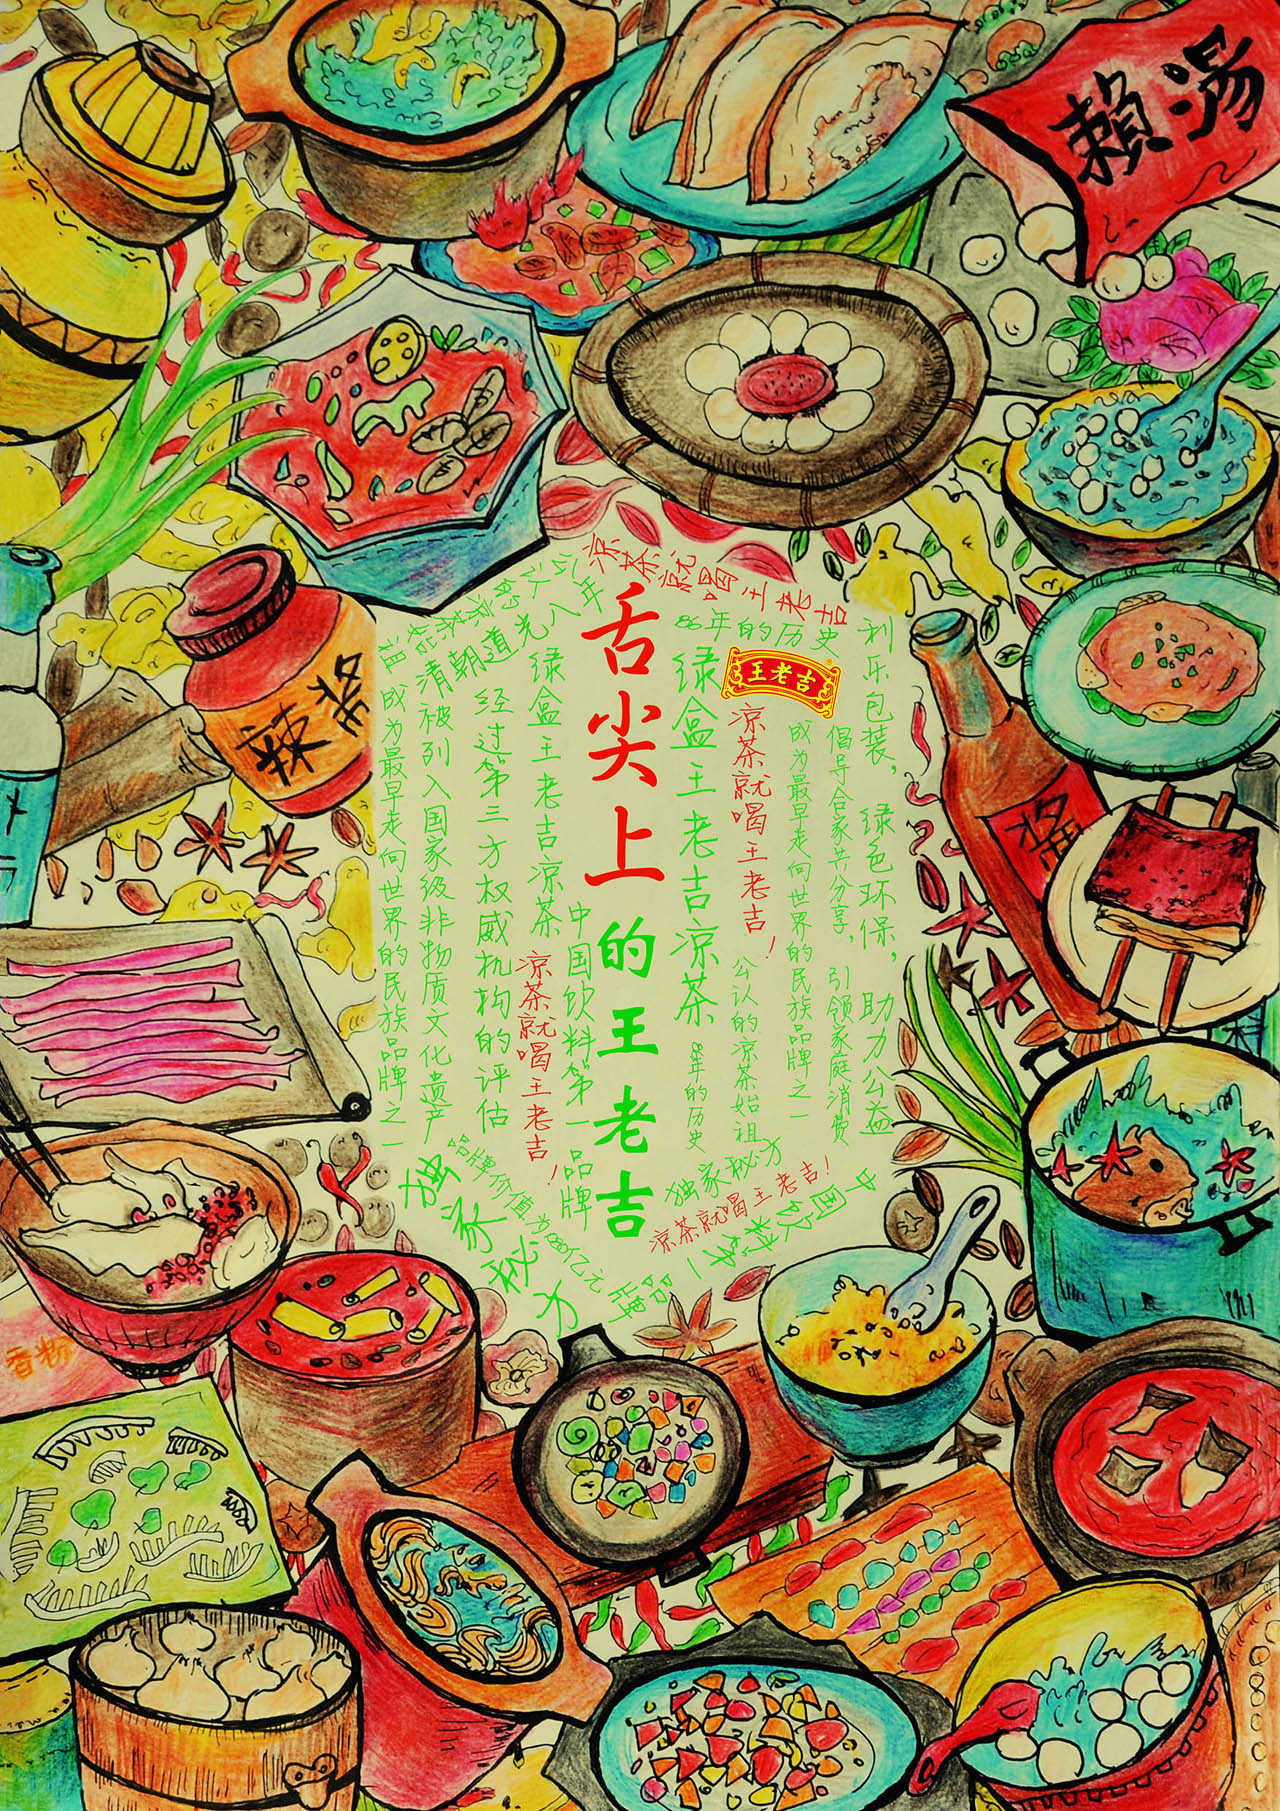 賴湯
辣酱
酱
香粉
凉茶就喝王老吉
舌尖上的王老吉
王老吉
86年的历史
利乐包装，绿色环保，助力公益
倡导合家共分享，引领家庭消费
成为最早走向世界的民族品牌之一
凉茶就喝王老吉！
公认的凉茶始祖
绿盒王老吉凉茶
年的历史
独家秘方
凉茶就喝王老吉！
中国饮料第一品牌
中国饮料第一品牌
绿盒王老吉凉茶
凉茶就喝王老吉！
经过第三方权威机构的评估
清朝道光八年
被列入国家级非物质文化遗产
成为最早走向世界的民族品牌之一
公认的凉茶始祖
品牌价值为1080亿元
独家秘方